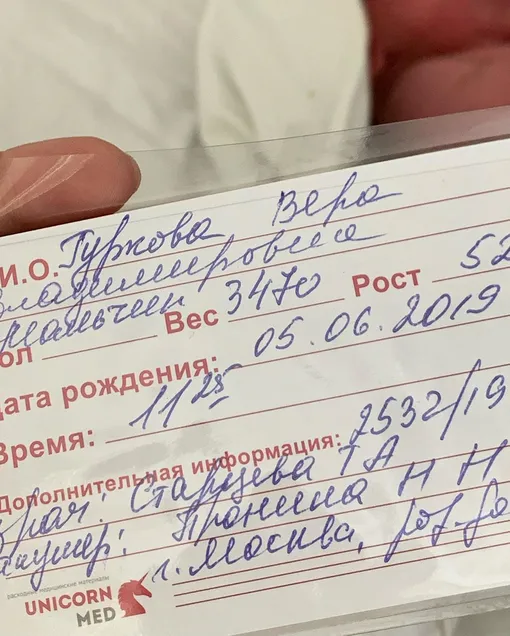 И.О. Гуркова Вера
Владимировна
ол мальчик Вес 3470 Рост 52
ата рождения: 05.06.2019
Время: 11 25
Дополнительная информация: 2532/19
врач: Старцева ТА
акушер: Пронина Н Н
г. Москва,
расходные медицинские материалы
UNICORN
MED